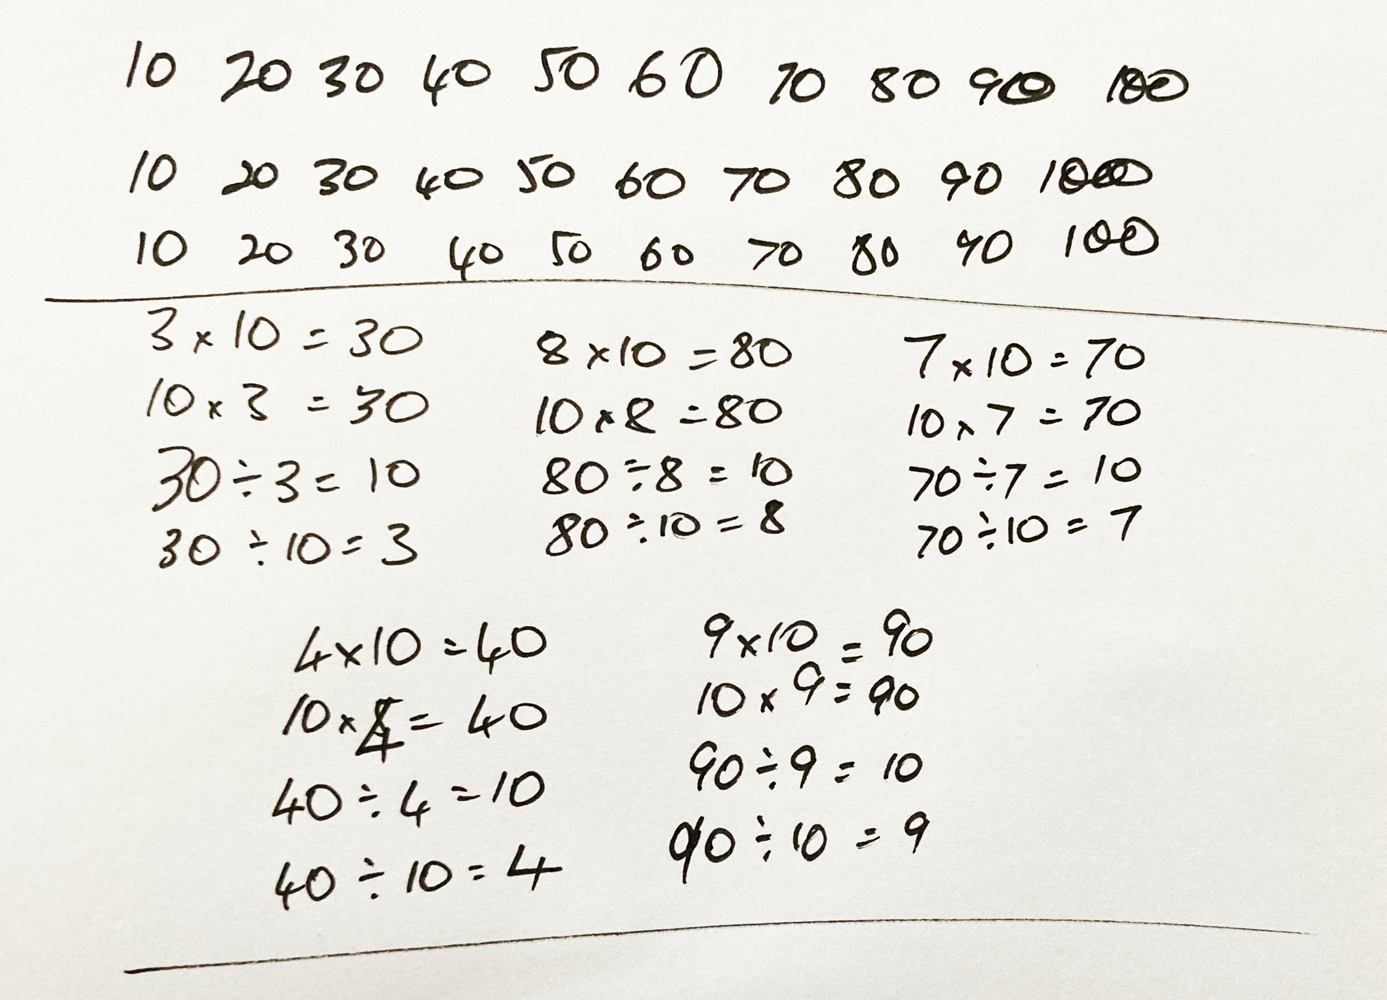 10 20 30 40 50 60 70 80 90 100
10 20 30 40 50 60 70 80 90 100
10 20 30 40 50 60 70 80 90 100
3 × 10 = 30
10 × 3 = 30
30 ÷ 3 = 10
30 ÷ 10 = 3
8 × 10 = 80
10 × 8 = 80
80 ÷ 8 = 10
80 ÷ 10 = 8
7 × 10 = 70
10 × 7 = 70
70 ÷ 7 = 10
70 ÷ 10 = 7
4 × 10 = 40
10 × 4 = 40
40 ÷ 4 = 10
40 ÷ 10 = 4
9 × 10 = 90
10 × 9 = 90
90 ÷ 9 = 10
90 ÷ 10 = 9